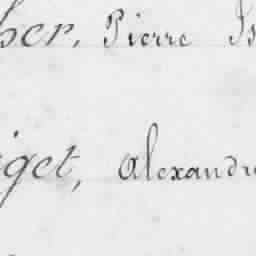 her, Pierre Is
iget, Alexandre